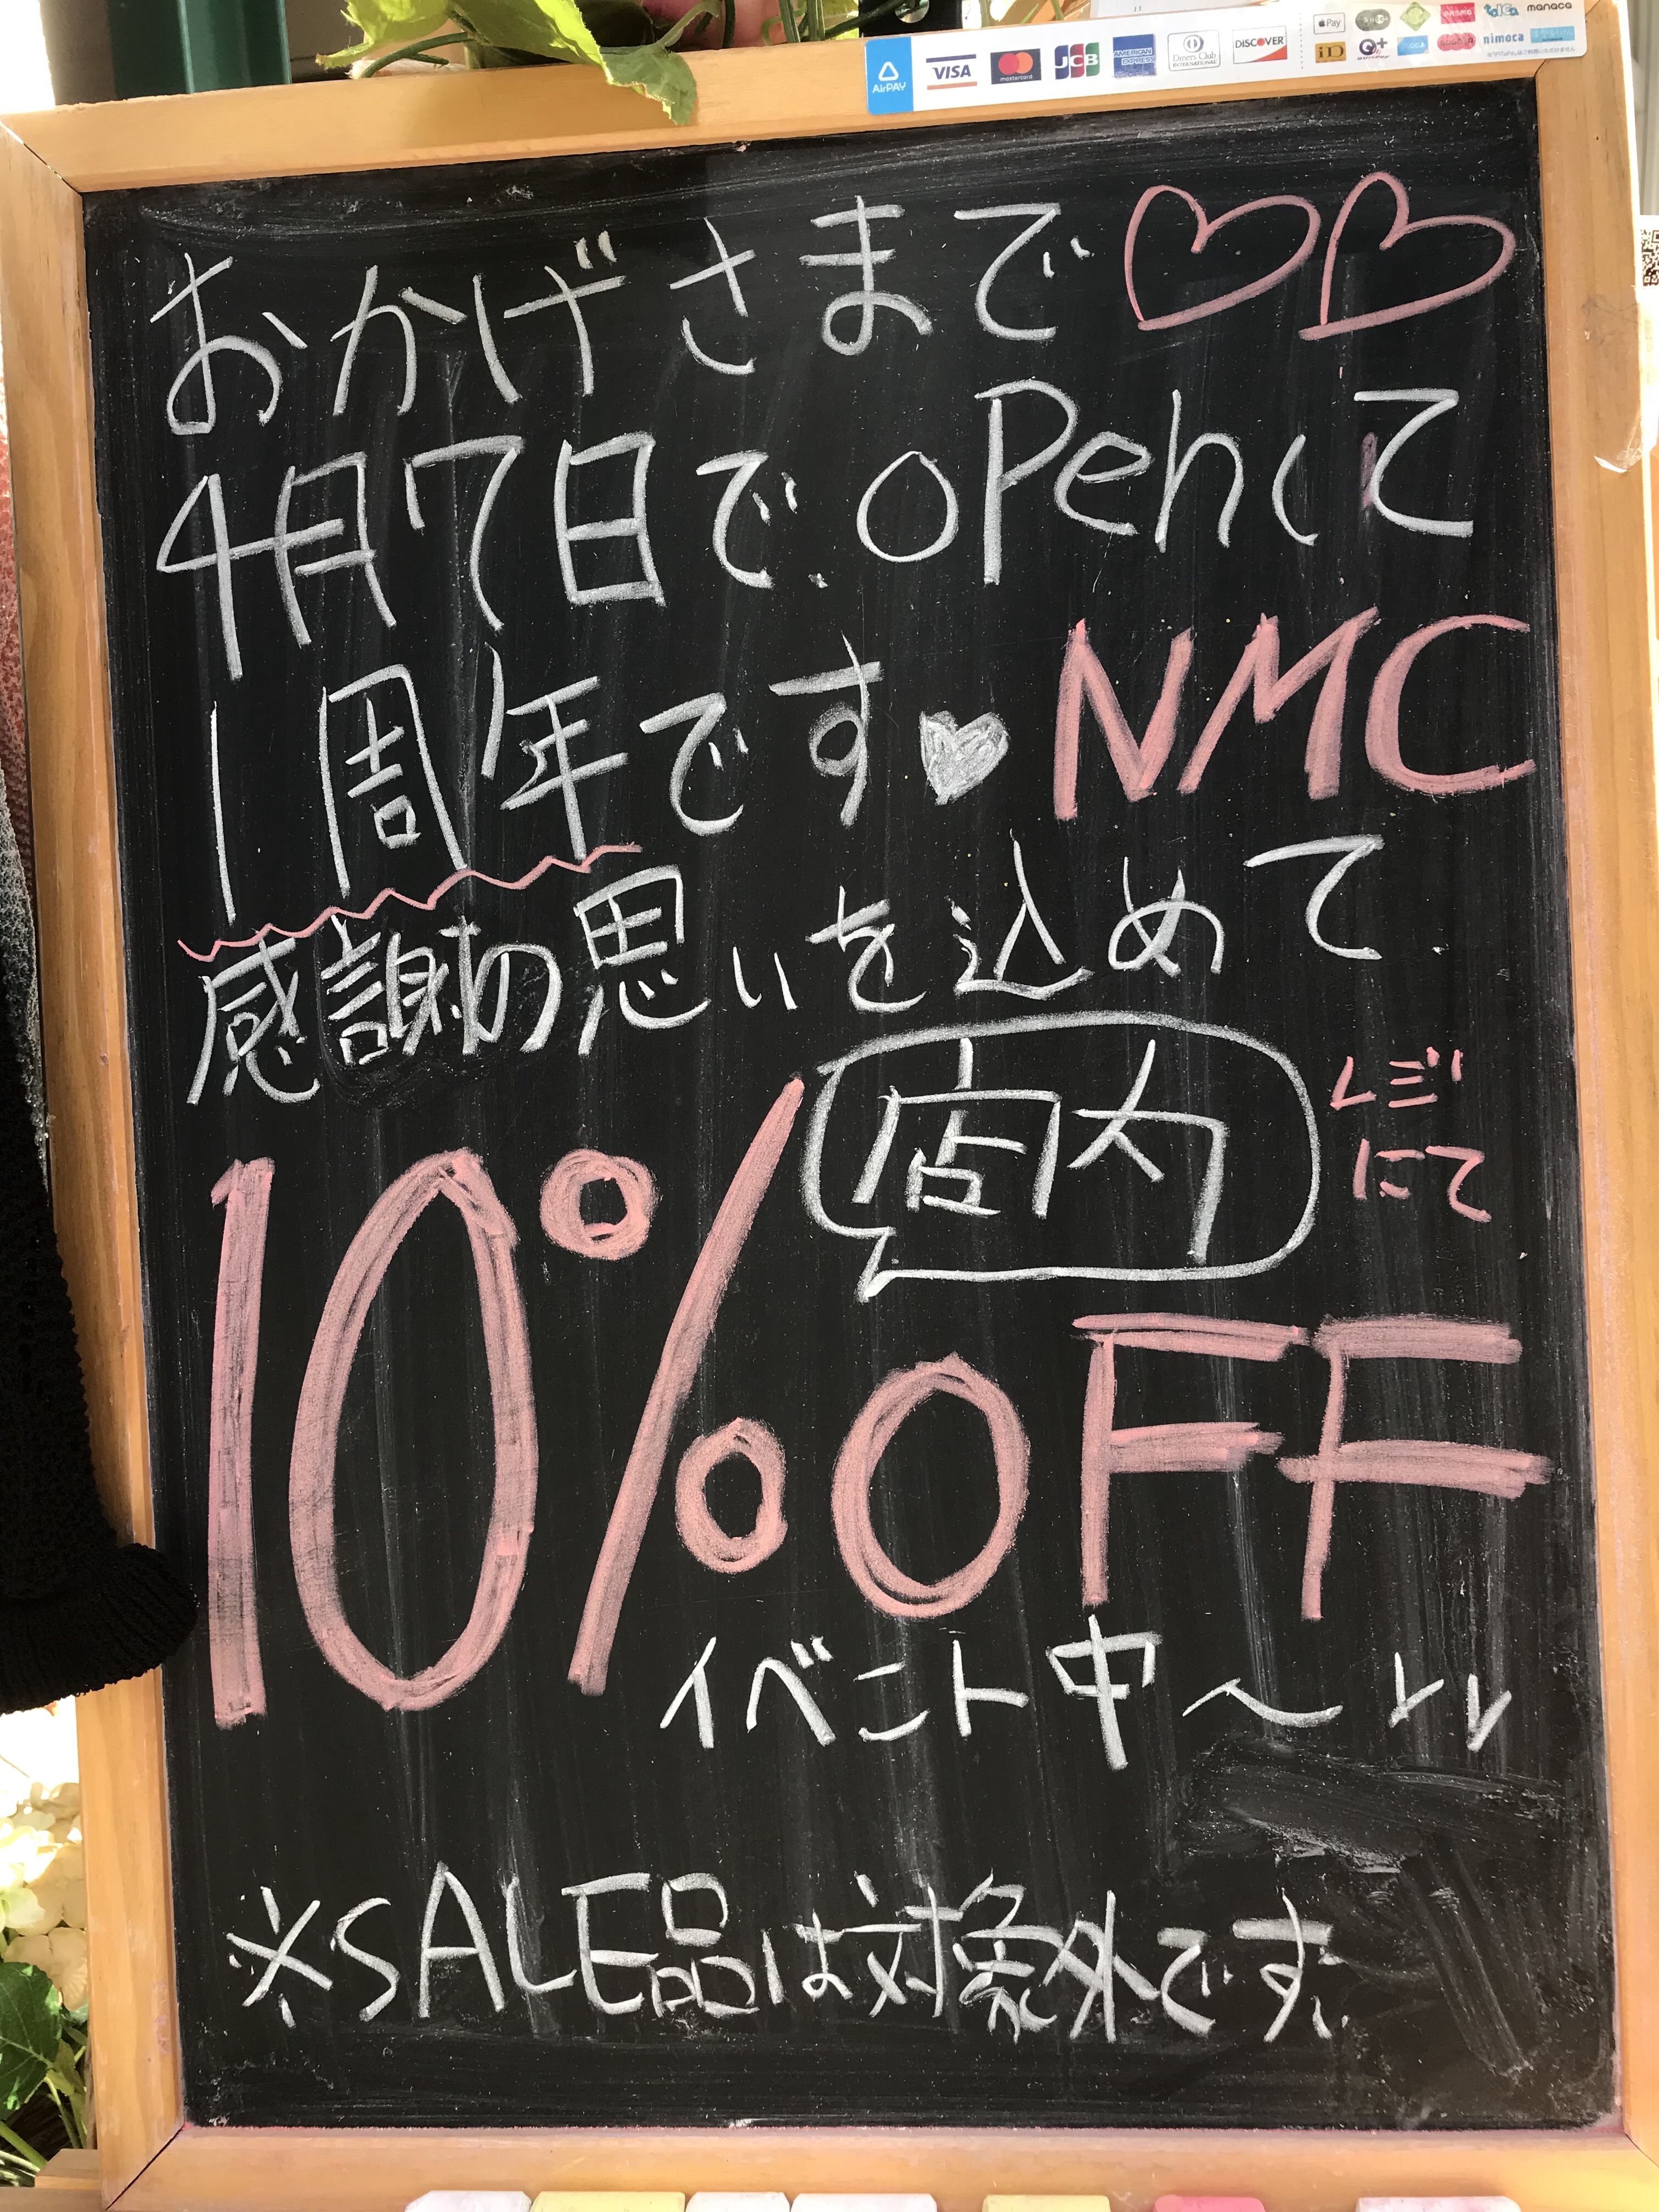 AirPAY VISA mastercard JCB AMERICAN EXPRESS Diners Club INTERNATIONAL DISCOVER Pay iD nimoca manaca
おかげさまで♡♡
4月7日で openして
1周年です♥ NMC
感謝の思いを込めて
店内 レジにて
10%OFF
イベント中〜
※SALE品は対象外です